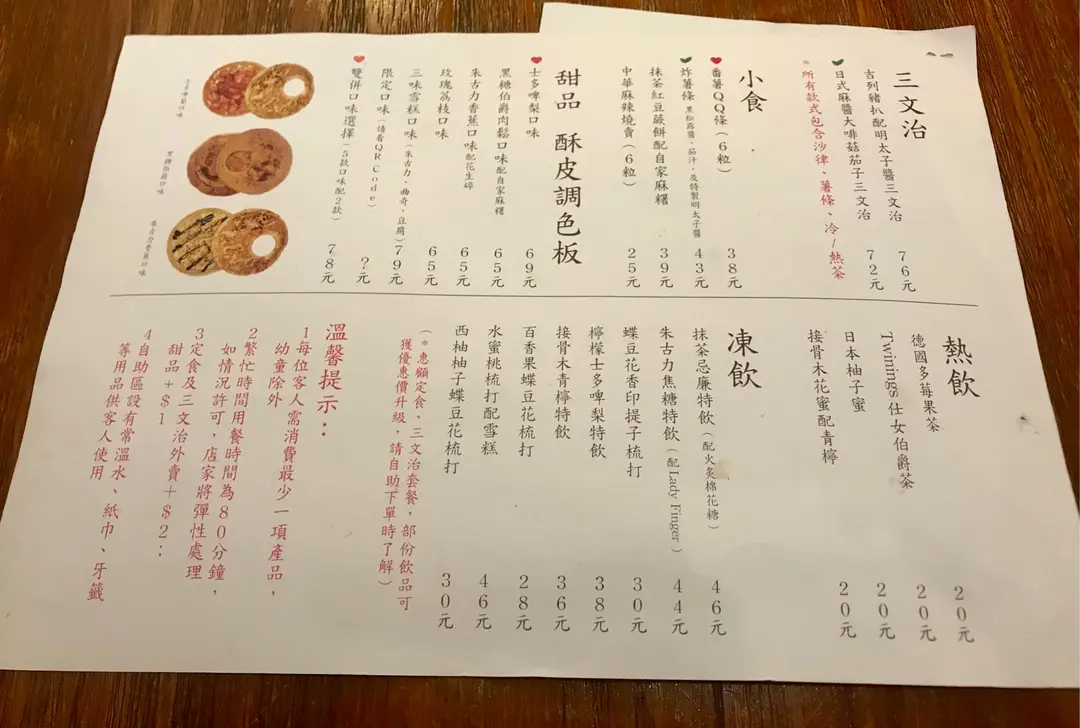 三文治
吉列豬扒配明太子醬三文治 76元
日式麻醬大啡菇茄子三文治 72元
*所有款式包含沙律、薯條、冷/熱茶
小食
番薯QQ條(6粒) 38元
炸薯條 黑松露醬、茄汁、及特製明太子醬 43元
抹茶紅豆蕨餅配自家麻糬 39元
中華麻辣燒賣(6粒) 25元
甜品 酥皮調色板
士多啤梨口味 69元
黑糖伯爵肉鬆口味配自家麻糬 65元
朱古力香蕉口味配花生碎 65元
玫瑰荔枝口味 65元
三味雪糕口味(朱古力、曲奇、豆腐) 79元
限定口味(請看QR Code) ?元
雙併口味選擇(5款口味配2款) 78元
士多啤梨口味
黑糖伯爵口味
朱古力香蕉口味
熱飲
德國多莓果茶 20元
Twinings 仕女伯爵茶 20元
日本柚子蜜 20元
接骨木花蜜配青檸 20元
凍飲
抹茶忌廉特飲(配火炙棉花糖) 46元
朱古力焦糖特飲(配Lady Finger) 44元
蝶豆花香印提子梳打 30元
檸檬士多啤梨特飲 38元
接骨木青檸特飲 36元
百香果蝶豆花梳打 28元
水蜜桃梳打配雪糕 46元
西柚柚子蝶豆花梳打 30元
(*惠顧定食、三文治套餐,部份飲品可
獲優惠價升級,請自助下單時了解)
溫馨提示:
1每位客人需消費最少一項產品,
幼童除外
2繁忙時間用餐時間為80分鐘,
如情況許可,店家將彈性處理
3定食及三文治外賣+$2;
甜品+$1
4自助區設有常溫水、紙巾、牙籤
等用品供客人使用